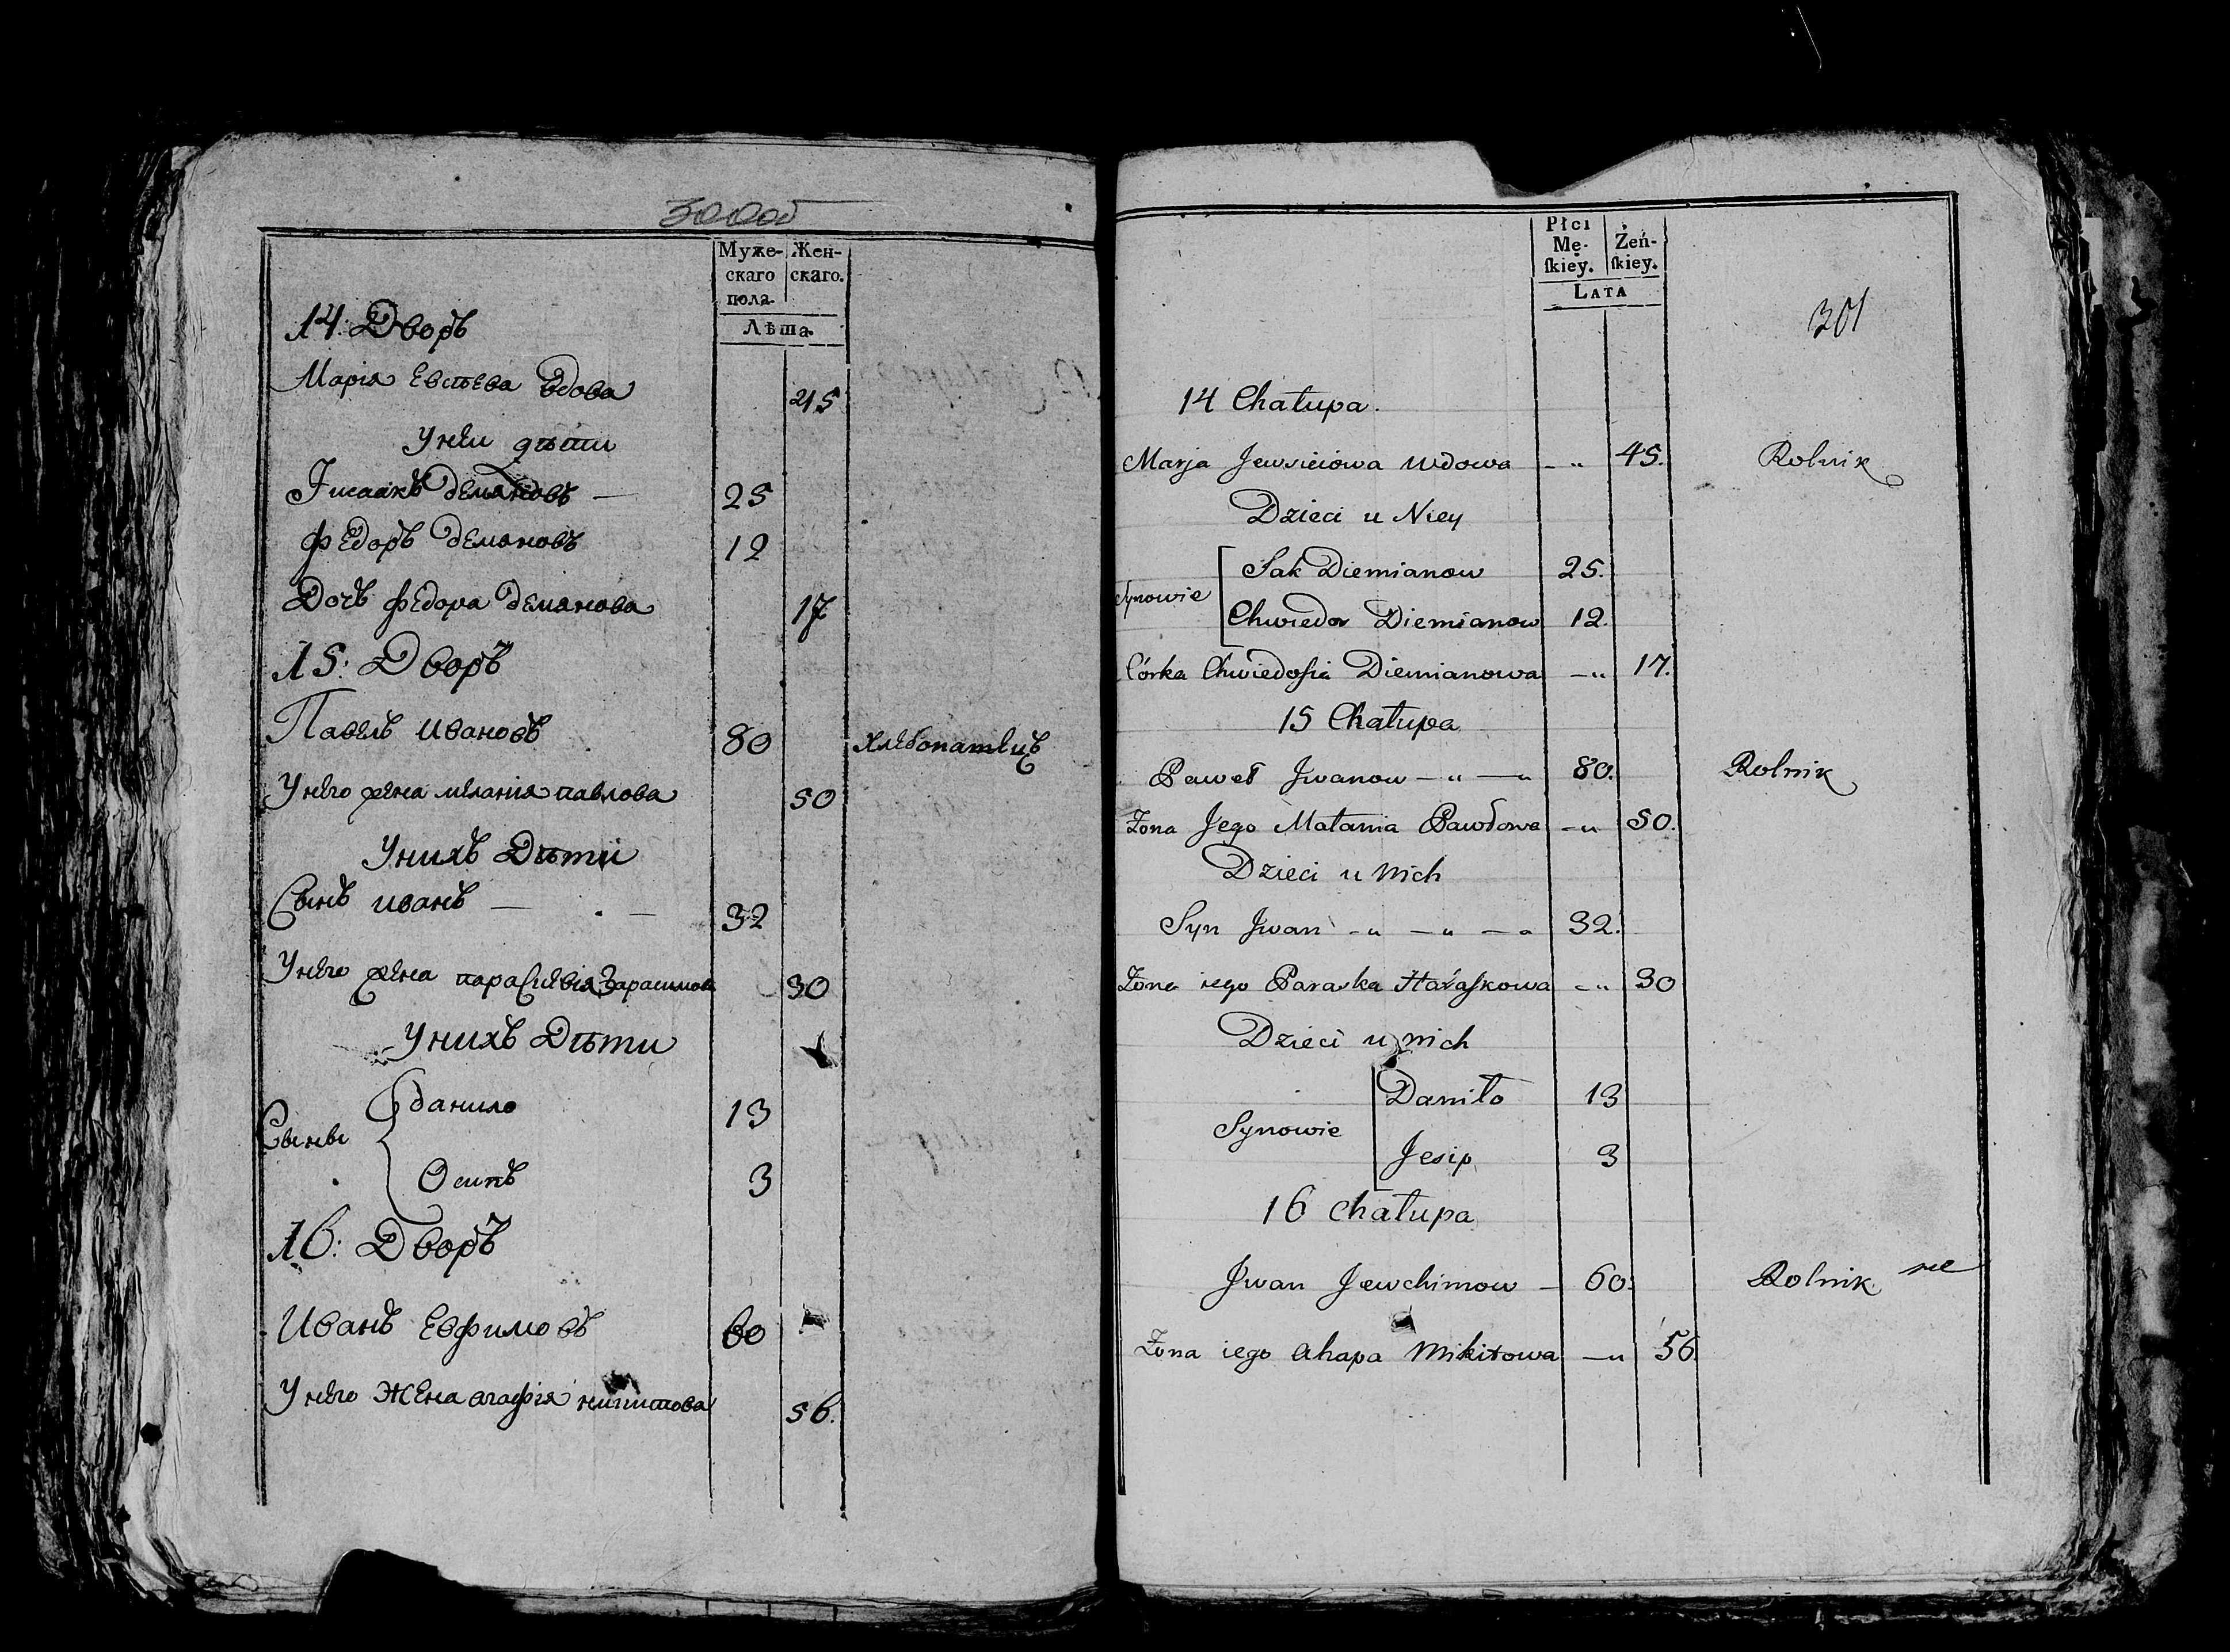 300об
Муже-
скаго
пола.
Жен-
скаго.
Лѣта.
14: Дворъ
Марія Евсѣева вдова 45
Унеи дѣти
Иисаакъ демяновъ — 25
Федоръ демяновъ 12
Дочъ федора демянова 17
15: Дворъ
Павелъ Ивановъ 80 хлебопатецъ
Унего жена меланія павлова 50
Унихъ Дѣти
Сынъ иванъ — . — 32
Унего жена парасцевія Зарасимова 30
Унихъ Дѣти
Сынъи
данило 13
Осипъ 3
16: Дворъ
Иванъ Евфимовъ 60
Унего Жена агафія никитова 56.
Płci
Mę-
ſkiey.
Żeń-
ſkiey.
LATA
301
14 Chałupa.
Marja Jewsieiowa Wdowa - " 45. Rolnik
Dzieci u Niey
Synowie
Sak Diemianow 25.
Chwiedor Diemianow 12.
Córka Chwiedoſia Diemianowa - " 17.
15 Chałupa
Paweł Jwanow - " - " 80. Rolnik
Żona Jego Małania Pawłowa - " 50.
Dzieci u Nich
Syn Jwan - " - " - " 32.
Żona iego Paraska Haraſkowa - " 30
Dzieci u nich
Synowie
Daniło 13
Jesip 3
16 Chałupa
Jwan Jewchimow - 60. Rolnik
Żona iego Ahapa Mikitowa - " 56.